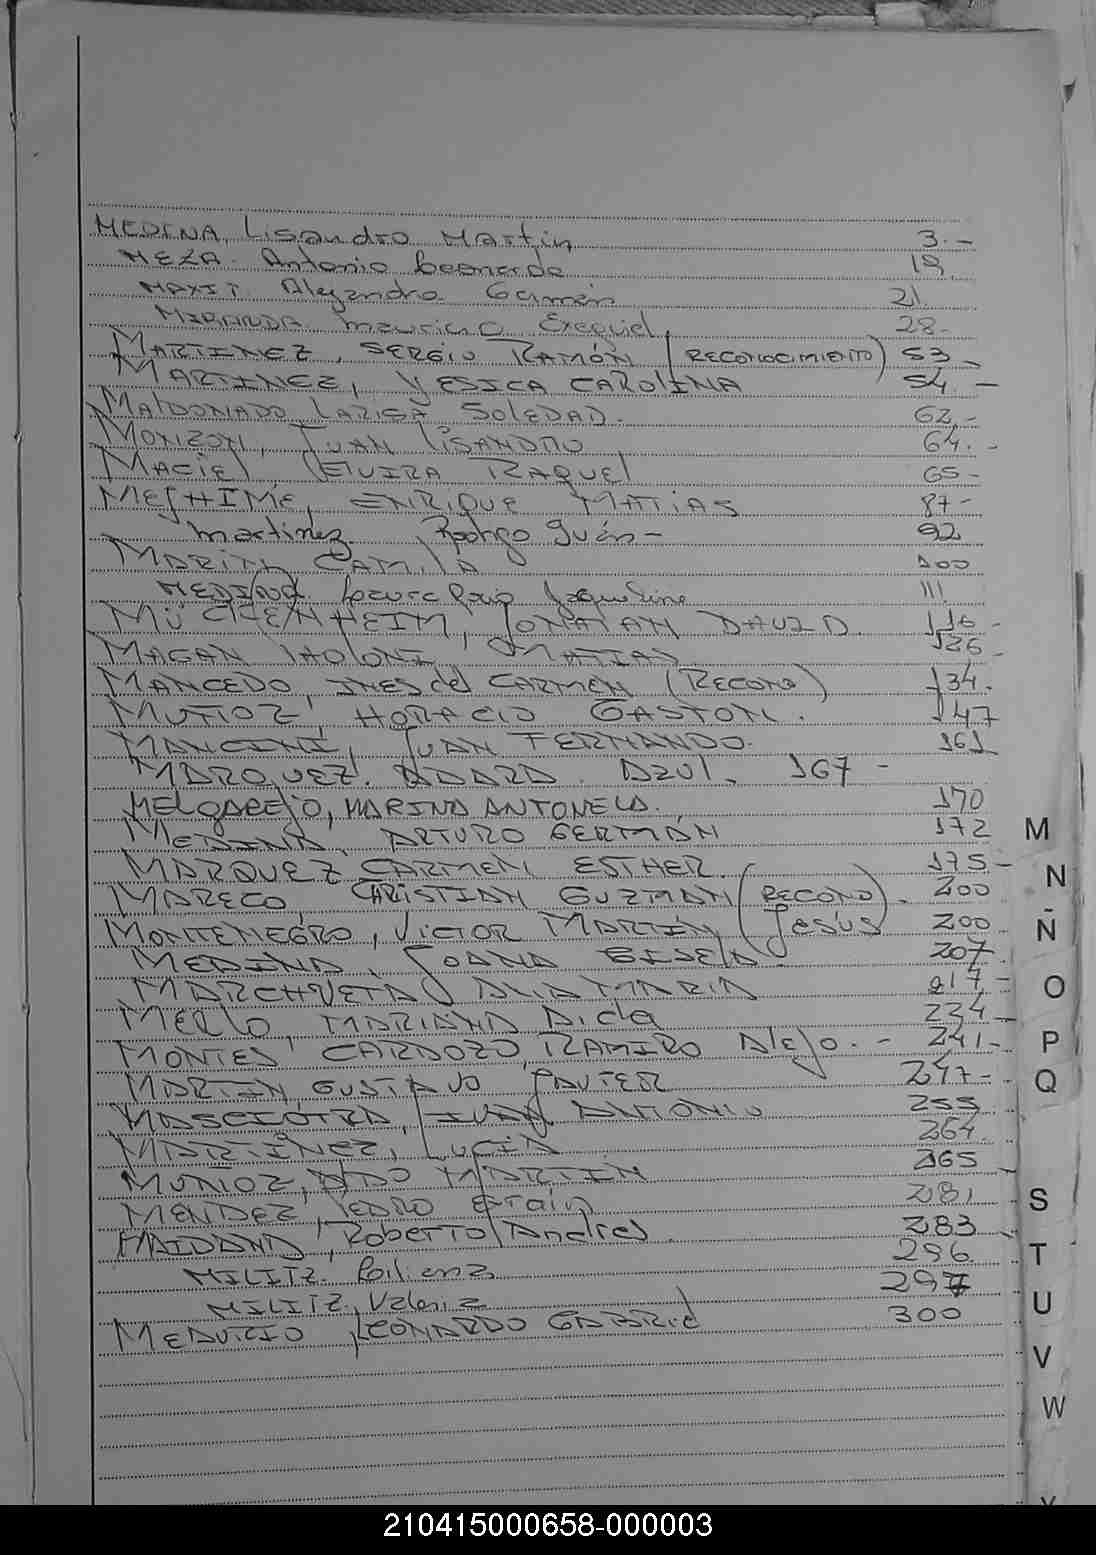 MEDINA, Lisandro Martin 3.-
MEZA. Antonio Leonardo 19
MAXIT. Alejandro Germán 21.
MIRANDA Mauricio Exequiel. 28-
MARTINEZ, SERGIO RAMÓN (RECONOCIMIENTO) 53
MARTINEZ, YESICA CAROLINA 54 -
MALDONADO LARISA SOLEDAD. 62.-
MONZON, JUAN LISANDRO 64.-
MACIEL ELVIRA RAQUEL 65-
ENRIQUE MATIAS 87-
Martinez. Rodrigo Iván- 92
MARIN CAMILA 100
MEDINA. Jaqueline 111
JONATAN DAVID. 116-
MAGAN MATIAS 126-
MANCEDO, INES del CARMEN (RECONO) 134.
MUÑOZ, HORACIO GASTON. 147
MANCINI, JUAN FERNANDO. 161
MARQUEZ. ADARA. AZUL. 167 -
MELGAREJO, MARINA ANTONELA. 170
MEDINA, ARTURO GERMÁN 172
MARQUEZ CARMEN ESTHER. 175-
MARECO CRISTIAN GUZMAN (RECONO). 200
MONTENEGRO, VICTOR MARTÍN (Jesús 200
MEDINA, JOANA GISELA. 207-
ANA MARIA 217-
MERLO MARIANA AIDA 234-
MONTES CARDOZO, RAMIRO Alejo. - 241-
MARTIN, GUSTAVO JAVIER 247-
MASCIOTRA, IVAN ANTONIO 255
MARTINEZ, LUCIA 264.
MUÑOZ, ALDO MARTIN 265
MENDEZ, PEDRO Efraín 281
MAIDANA, Roberto Andres. 283
MILITZ. Liliana 296.
MILITZ, Valeria 297
LEONARDO GABRIEL 300
M
N
Ñ
O
P
Q
S
T
U
V
W
210415000658-000003